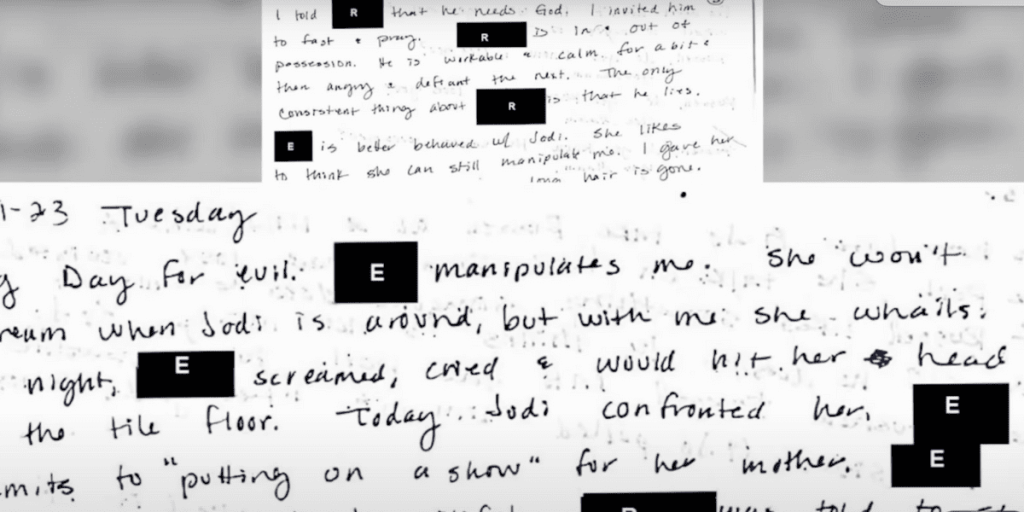 I told R that he needs God. I invited him
to fast & pray. R is in & out of
possession. He is workable & calm for a bit &
then angry & defiant the next. The only
consistent thing about R is that he lies.
E is better behaved w/ Jodi. She likes
to think she can still manipulate me. I gave her
hair is gone.
1-23 Tuesday
g Day for evil. E manipulates me. She won't
ream when Jodi is around, but with me she whails.
night, E screamed, cried & would hit her head
the tile floor. Today Jodi confronted her. E
mits to "putting on a show" for her mother. E
was told to